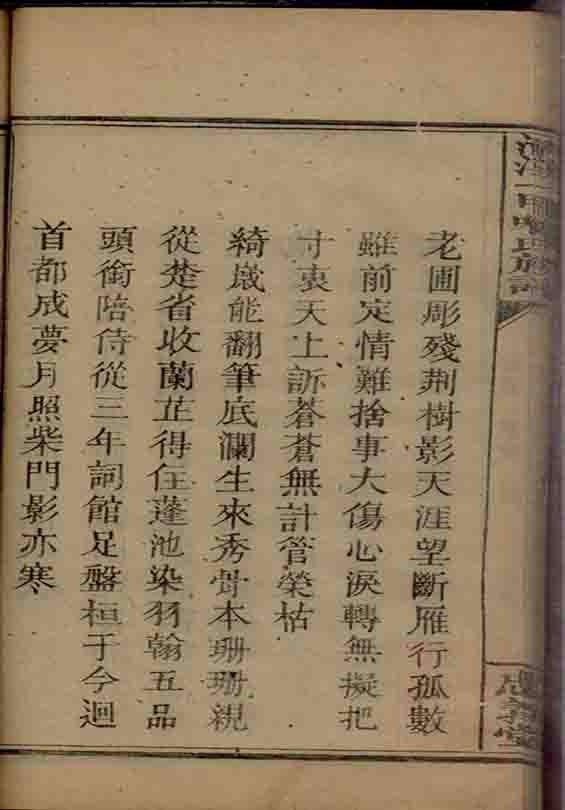 老圃彫殘荆樹影天涯望斷雁行孤數
雖前定情難捨事大傷心淚轉無擬把
寸衷天上訴蒼蒼無計管榮枯
綺歲能翻筆底瀾生來秀骨本珊珊親
從楚省收蘭芷得住蓬池染羽翰五品
頭銜陪侍從三年詞館足盤桓于今迴
首都成夢月照柴門影亦寒